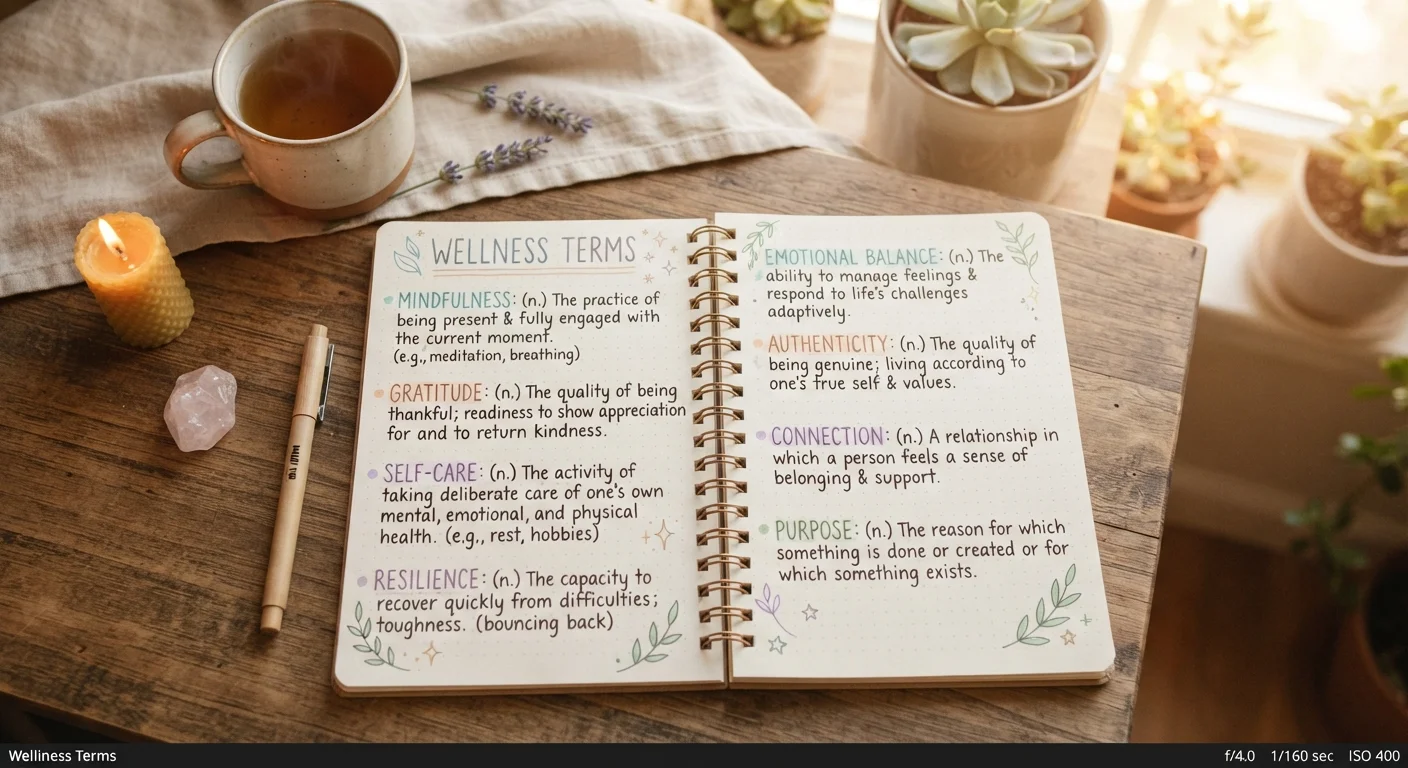 WELLNESS TERMS
MINDFULNESS: (n.) The practice of
being present & fully engaged with
the current moment.
(e.g., meditation, breathing)
GRATITUDE: (n.) The quality of being
thankful; readiness to show appreciation
for and to return kindness.
SELF-CARE: (n.) The activity of
taking deliberate care of one's own
mental, emotional, and physical
health. (e.g., rest, hobbies)
RESILIENCE: (n.) The capacity to
recover quickly from difficulties;
toughness. (bouncing back)
EMOTIONAL BALANCE: (n.) The
ability to manage feelings &
respond to life's challenges
adaptively.
AUTHENTICITY: (n.) The quality of
being genuine; living according to
one's true self & values.
CONNECTION: (n.) A relationship in
which a person feels a sense of
belonging & support.
PURPOSE: (n.) The reason for which
something is done or created or for
which something exists.
Welliness Terms
f/4.0 1/160 sec ISO 400